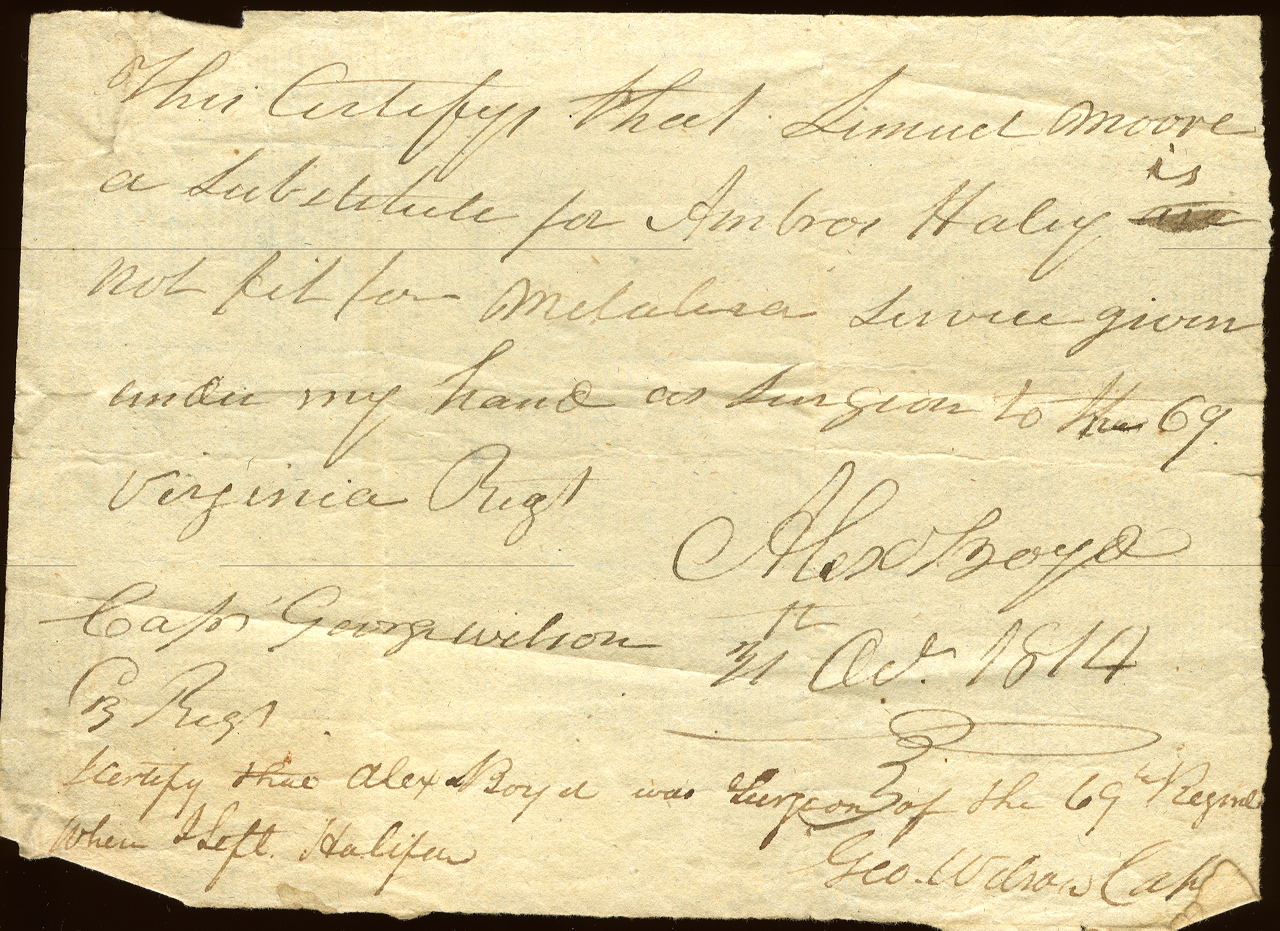 This Certifys that Limuel Moore
a Substitute for Ambros Haley is
not fit for Melalisia Service given
under my hand as Surgion to the 69
Virginia Regt
Alexr Boyd
Capt George Wilson
31 Oct. 1814
Regt
I Certify that Alexr Boyd was Surgeon of the 69th Regimt
When I Left Halifax
Geo. Wilson Capt